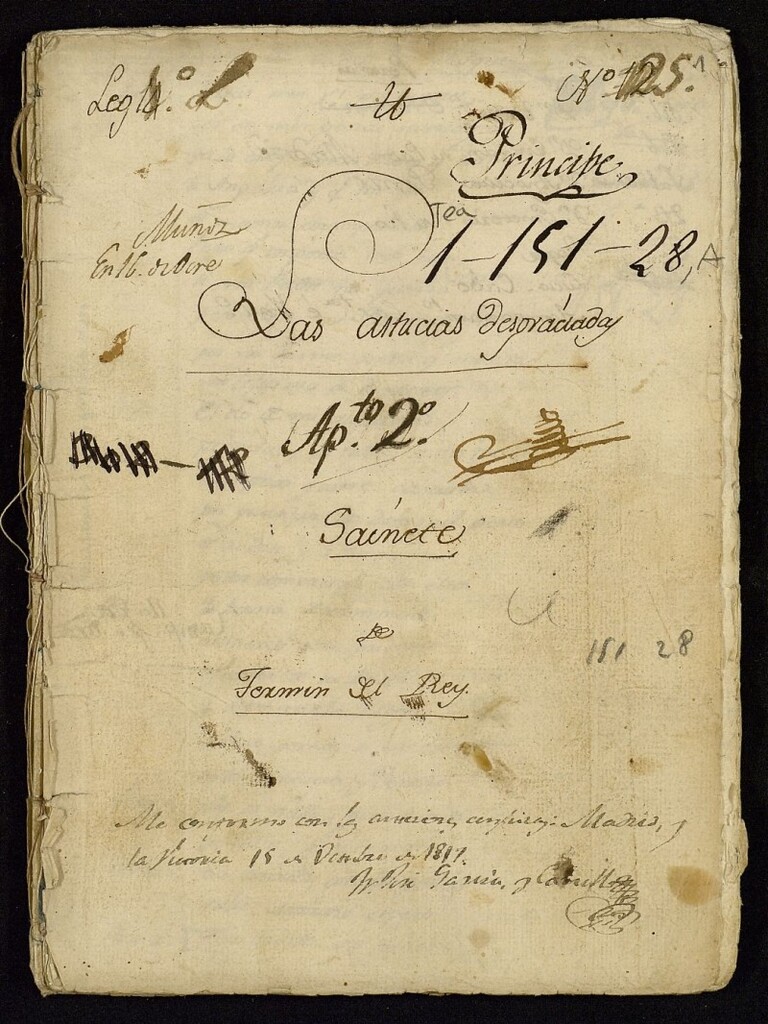 Leg.º
Nº 125.
Principe
Muñoz
En 16. de Ocre
Tea
1-151-28, A
Las astucias desgraciadas
Ap.to 2.º
Saínete
De
Fermin del Rey.
151 28
Me conformo con las anteriores censuras. Madrid, y
la Victoria 15 de Octubre de 1817.
Fr. José García, y Carrillo